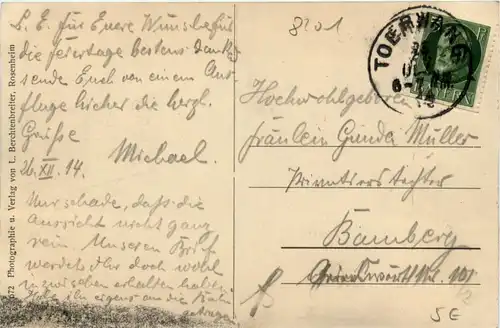 8201
L. E. für Euere Wünsche für
die Feiertage bestens dankd
sende Euch von einem Aus-
fluge hieher die herzl.
Grüße
Michael.
26. XII. 14.
Nur schade, daß die
Aussicht nicht ganz
rein. Unseren Brief
werdet Ihr doch wohl
inzwischen erhalten haben.
Habe ihn eigens an die Bahn
getragen.
672 Photographie u. Verlag von L. Berchtenbreiter, Rosenheim
TOERWANG
BAYERN
Hochwohlgeboren
Fräulein Gunda Müller
Privatierstochter
Bamberg
5E